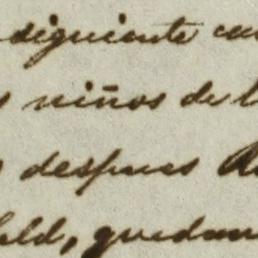 siguiente
niños de l
despues
feld, quedan